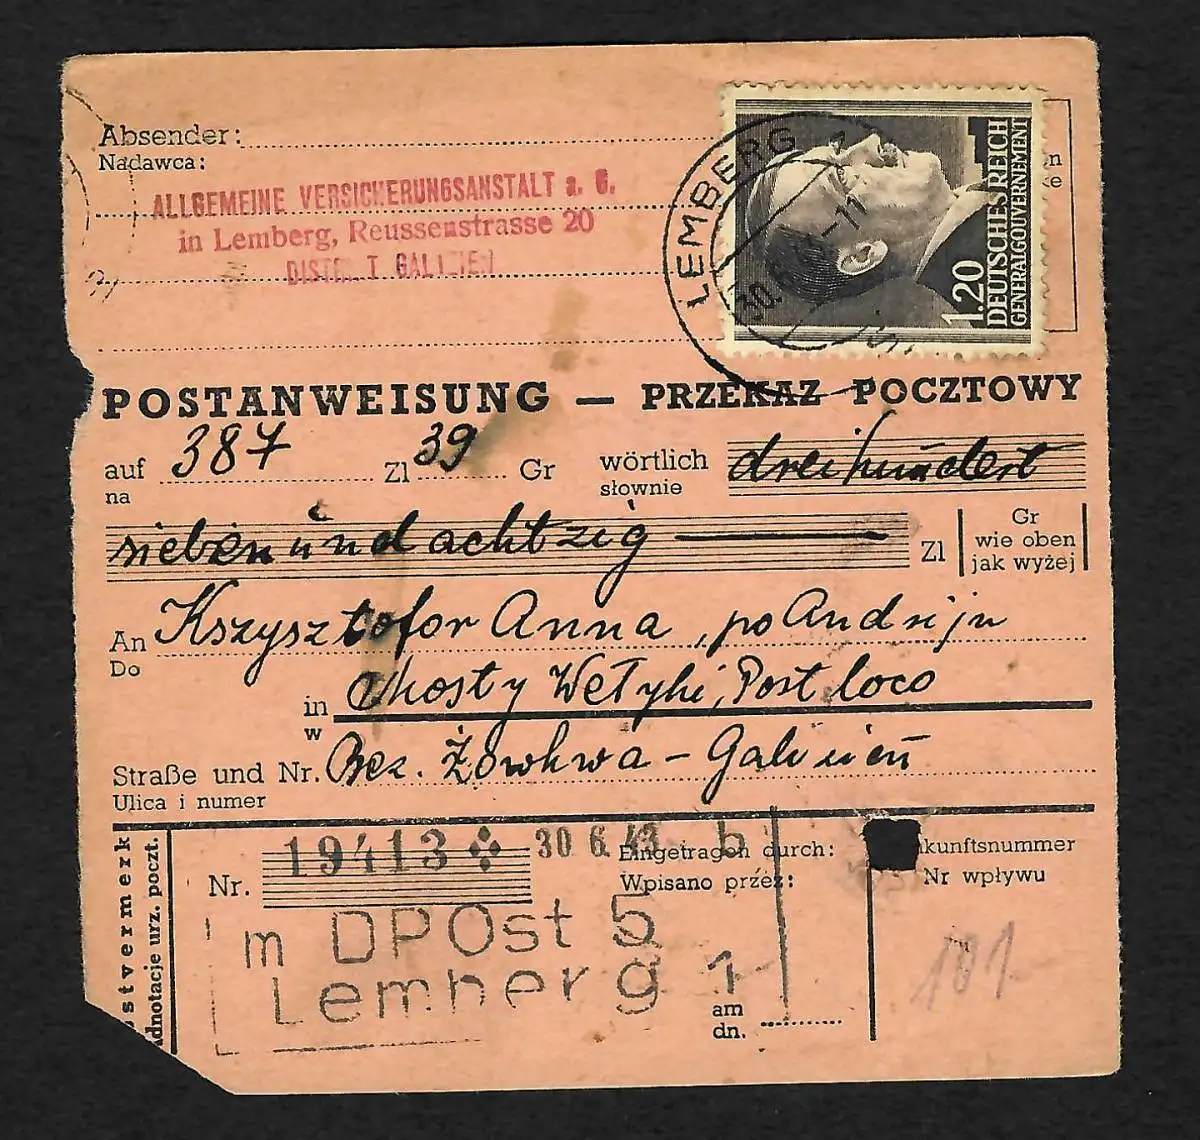 Absender:
Nadawca:
ALLGEMEINE VERSICHERUNGSANSTALT a. G.
in Lemberg, Reussenstrasse 20
GALIZIEN
LEMBERG 1
30.
-11
1.20
DEUTSCHES REICH
GENERALGOUVERNEMENT
POSTANWEISUNG — PRZEKAZ POCZTOWY
auf 387 Zl 39 Gr wörtlich dreihundert
na słownie
sieben und achtzig — Zl
Gr
wie oben
jak wyżej
An Kszysztofor Anna, po Andriju
Do
in Mosty Wełyki, Post loco
w
Straße und Nr. Bez. Żowkwa - Galizien
Ulica i numer
stvermerk
adnotacje urz. poczt.
Nr. 19413 30 6. 43 b
Eingetragen durch:
Wpisano przez:
kunftsnummer
Nr wpływu
m DPOst 5
Lemberg 1
am
dn.
101